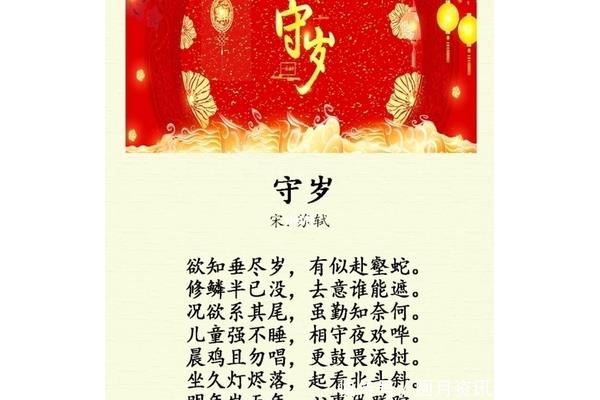 守岁
守岁
宋.苏轼
欲知垂尽岁，有似赴壑蛇。
修鳞半已没，去意谁能遮。
况欲系其尾，虽勤知奈何。
儿童强不睡，相守夜欢哗。
晨鸡且勿唱，更鼓畏添挝。
坐久灯烬落，起看北斗斜。
明年岁无年